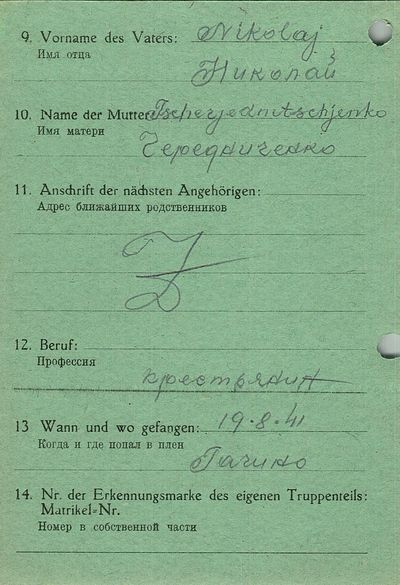 9. Vorname des Vaters: Nikolaj
Имя отца
Николай
10. Name der Mutter: Tscherjednitschjenko
Имя матери
Чередниченко
11. Anschrift der nächsten Angehörigen:
Адрес ближайших родственников
12. Beruf:
Профессия
крестьянин
13 Wann und wo gefangen: 19.8.41
Когда и где попал в плен
Гачино
14. Nr. der Erkennungsmarke des eigenen Truppenteils:
Matrikel-Nr.
Номер в собственной части